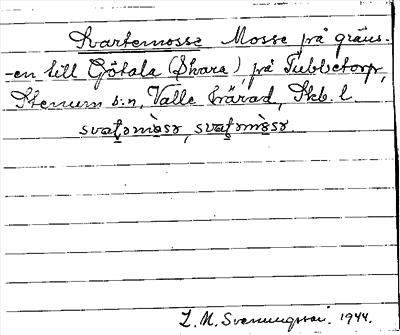 Svartemosse Mosse på gräns-
-en till Götala (Skara), på Tubbetorp,
Stenum s:n, Valle härad, Skb. l.
svat̯əmòsə, svat̯əmòsə.
L. M. Svenungsson. 1944.